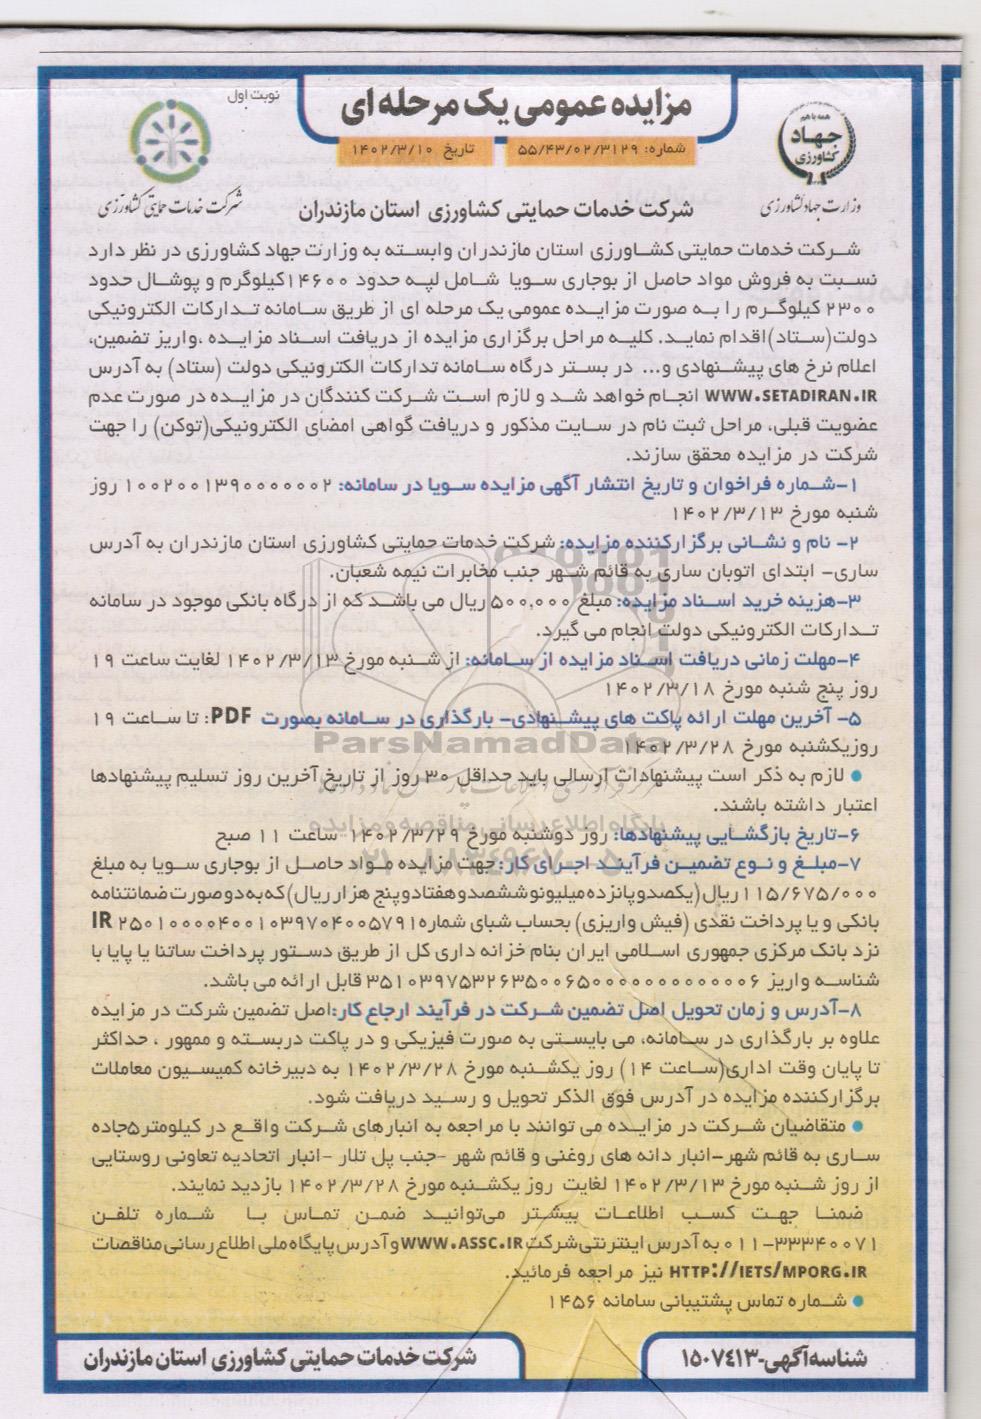 نوبت اول
مزایده عمومی یک مرحله ای
شماره: ۵۵/۴۳/۰۲/۳۱۲۹
تاریخ ۱۴۰۲/۳/۱۰
همه با هم
جهاد
کشاورزی
وزارت جهاد کشاورزی
شرکت خدمات حمایتی کشاورزی
شرکت خدمات حمایتی کشاورزی استان مازندران
شرکت خدمات حمایتی کشاورزی استان مازندران وابسته به وزارت جهاد کشاورزی در نظر دارد
نسبت به فروش مواد حاصل از بوجاری سویا شامل لپه حدود ۱۴۶۰۰کیلوگرم و پوشال حدود
۲۳۰۰ کیلوگرم را به صورت مزایده عمومی یک مرحله ای از طریق سامانه تدارکات الکترونیکی
دولت(ستاد)اقدام نماید. کلیه مراحل برگزاری مزایده از دریافت اسناد مزایده ،واریز تضمین،
اعلام نرخ های پیشنهادی و... در بستر درگاه سامانه تدارکات الکترونیکی دولت (ستاد) به آدرس
WWW.SETADIRAN.IR انجام خواهد شد و لازم است شرکت کنندگان در مزایده در صورت عدم
عضویت قبلی، مراحل ثبت نام در سایت مذکور و دریافت گواهی امضای الکترونیکی(توکن) را جهت
شرکت در مزایده محقق سازند.
۱-شماره فراخوان و تاریخ انتشار آگهی مزایده سویا در سامانه: ۱۰۰۲۰۰۱۳۹۰۰۰۰۰۰۲ روز
شنبه مورخ ۱۴۰۲/۳/۱۳
۲- نام و نشانی برگزارکننده مزایده: شرکت خدمات حمایتی کشاورزی استان مازندران به آدرس
ساری- ابتدای اتوبان ساری به قائم شهر جنب مخابرات نیمه شعبان.
۳-هزینه خرید اسناد مزایده: مبلغ ۵۰۰,۰۰۰ ریال می باشد که از درگاه بانکی موجود در سامانه
تدارکات الکترونیکی دولت انجام می گیرد.
۴-مهلت زمانی دریافت اسناد مزایده از سامانه: از شنبه مورخ ۱۴۰۲/۳/۱۳ لغایت ساعت ۱۹
روز پنج شنبه مورخ ۱۴۰۲/۳/۱۸
۵- آخرین مهلت ارائه پاکت های پیشنهادی- بارگذاری در سامانه بصورت PDF: تا ساعت ۱۹
روزیکشنبه مورخ ۱۴۰۲/۳/۲۸
ParsNamadData
● لازم به ذکر است پیشنهادات ارسالی باید حداقل ۳۰ روز از تاریخ آخرین روز تسلیم پیشنهادها
اعتبار داشته باشند.
پایگاه اطلاع رسانی مناقصه و مزایده
۶-تاریخ بازگشایی پیشنهادها: روز دوشنبه مورخ ۱۴۰۲/۳/۲۹ ساعت ۱۱ صبح
۷-مبلغ و نوع تضمین فرآیند اجرای کار: جهت مزایده مواد حاصل از بوجاری سویا به مبلغ
۱۱۵/۶۷۵/۰۰۰ ریال(یکصدوپانزده‌میلیونوششصدوهفتادوپنج هزار ریال)که به دو صورت ضمانتنامه
بانکی و یا پرداخت نقدی (فیش واریزی) بحساب شبای شماره IR ۲۵۰۱۰۰۰۰۴۰۰۱۰۳۹۷۰۴۰۰۵۷۹۱
نزد بانک مرکزی جمهوری اسلامی ایران بنام خزانه داری کل از طریق دستور پرداخت ساتنا یا پایا با
شناسه واریز ۳۵۱۰۳۹۷۵۳۲۶۳۵۰۰۶۵۰۰۰۰۰۰۰۰۰۰۰۰۶ قابل ارائه می باشد.
۸-آدرس و زمان تحویل اصل تضمین شرکت در فرآیند ارجاع کار:اصل تضمین شرکت در مزایده
علاوه بر بارگذاری در سامانه، می بایستی به صورت فیزیکی و در پاکت دربسته و ممهور ، حداکثر
تا پایان وقت اداری(ساعت ۱۴) روز یکشنبه مورخ ۱۴۰۲/۳/۲۸ به دبیرخانه کمیسیون معاملات
برگزارکننده مزایده در آدرس فوق الذکر تحویل و رسید دریافت شود.
● متقاضیان شرکت در مزایده می توانند با مراجعه به انبارهای شرکت واقع در کیلومتر۵جاده
ساری به قائم شهر-انبار دانه های روغنی و قائم شهر -جنب پل تلار -انبار اتحادیه تعاونی روستایی
از روز شنبه مورخ ۱۴۰۲/۳/۱۳ لغایت روز یکشنبه مورخ ۱۴۰۲/۳/۲۸ بازدید نمایند.
ضمنا جهت کسب اطلاعات بیشتر می‌توانید ضمن تماس با شماره تلفن
۰۱۱-۳۳۳۴۰۰۷۱ به آدرس اینترنتی شرکت WWW.ASSC.IR و آدرس پایگاه ملی اطلاع رسانی مناقصات
HTTP://IETS/MPORG.IR نیز مراجعه فرمائید.
● شماره تماس پشتیبانی سامانه ۱۴۵۶
شناسه آگهی-۱۵۰۷۴۱۳
شرکت خدمات حمایتی کشاورزی استان مازندران